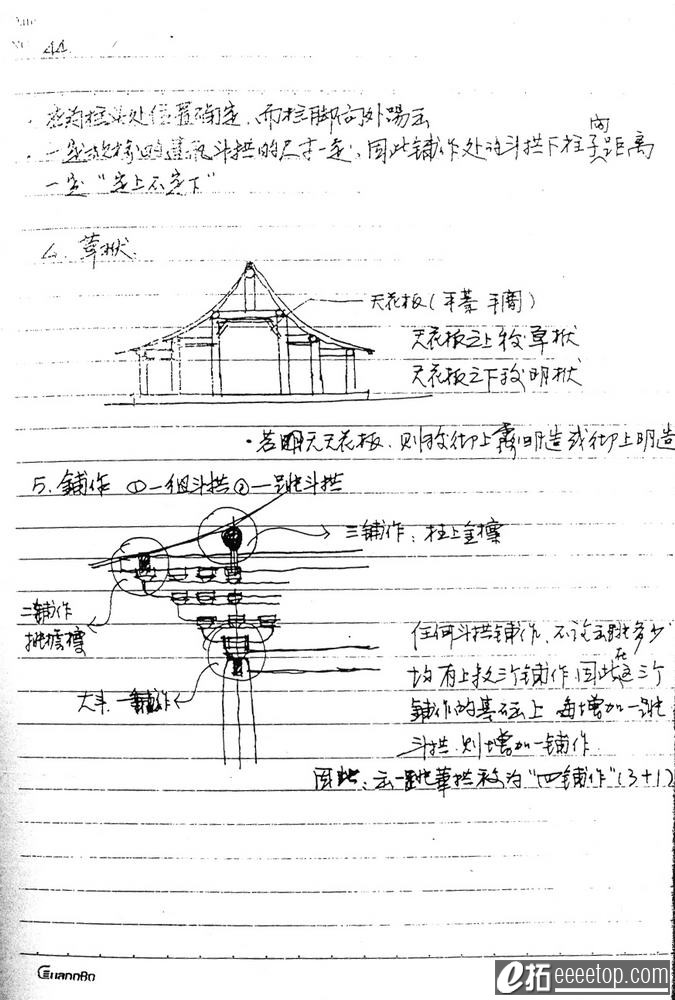 44
应为柱头处位置确定,而柱脚向外踢出
一定 斗拱的尺寸一定,因此铺作处的斗拱下柱子间距离
一定“定上不定下”
草栿
天花板(平棊 平闇)
天花板之上称草栿
天花板之下称明栿
·若 无天花板,则称彻上露明造或彻上明造
5. 铺作 ①一组斗拱②一跳斗拱
三铺作:柱上 檩
二铺作
挑檐檩
大斗:一铺作
任何斗拱铺作,不论出跳多少
均有上述三个铺作,因此在这三个
铺作的基础上,每增加一跳
斗拱,则增加一铺作
因此:出一跳华拱称为“四铺作”(3+1)
GuangBo
e拓 eeeetop.com